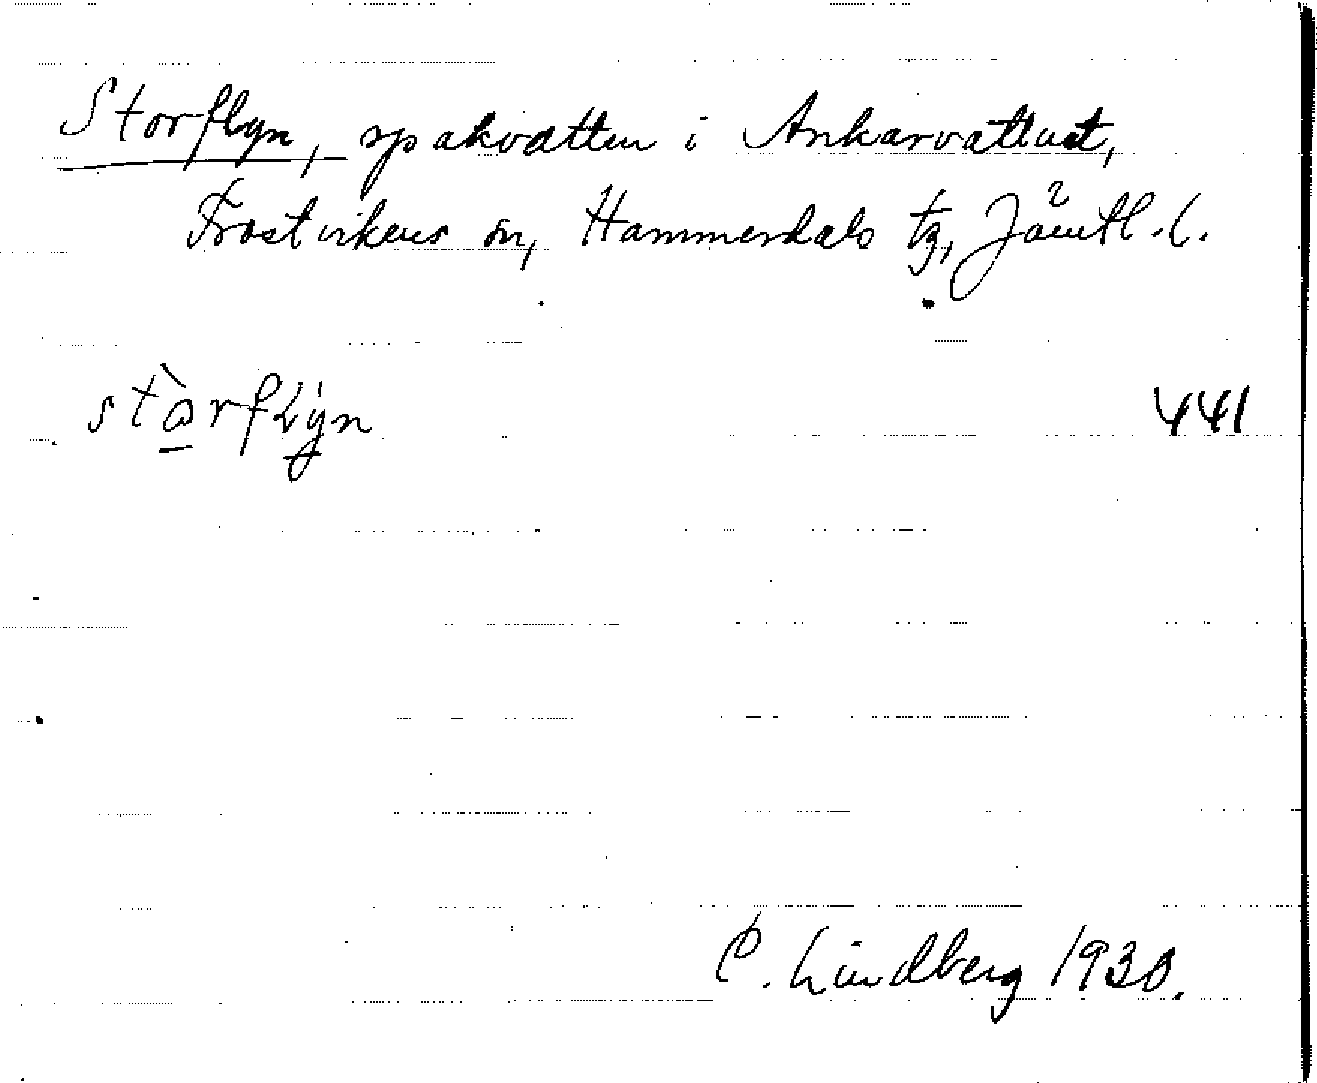 Storflyn, spakvatten i Ankarvattnet,
Frostvikens sn, Hammerdals tg, Jämtl. l.
441
C. Lindberg 1930.